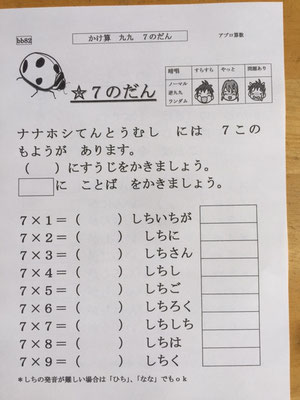 bb82
かけ算 九九 7のだん
アプロ算数
暗唱 すらすら やっと 問題あり
ノーマル
逆九九
ランダム
☆7のだん
ナナホシてんとうむし には 7この
もようが あります。
( )にすうじをかきましょう。
に ことば をかきましょう。
7×1=( ) しちいちが
7×2=( ) しちに
7×3=( ) しちさん
7×4=( ) しちし
7×5=( ) しちご
7×6=( ) しちろく
7×7=( ) しちしち
7×8=( ) しちは
7×9=( ) しちく
*しちの発音が難しい場合は「ひち」、「なな」でもok